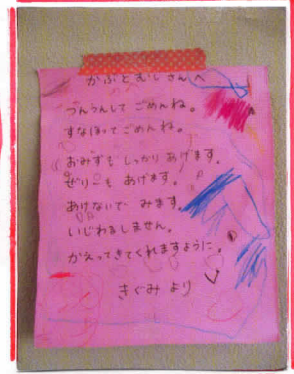 かぶとむしさんへ
つんつんして ごめんね。
すなほって ごめんね。
おみずも しっかり あげます。
ぜりーも あげます。
あけないで みます。
いじわるしません。
かえってきてくれますように。
きぐみ より